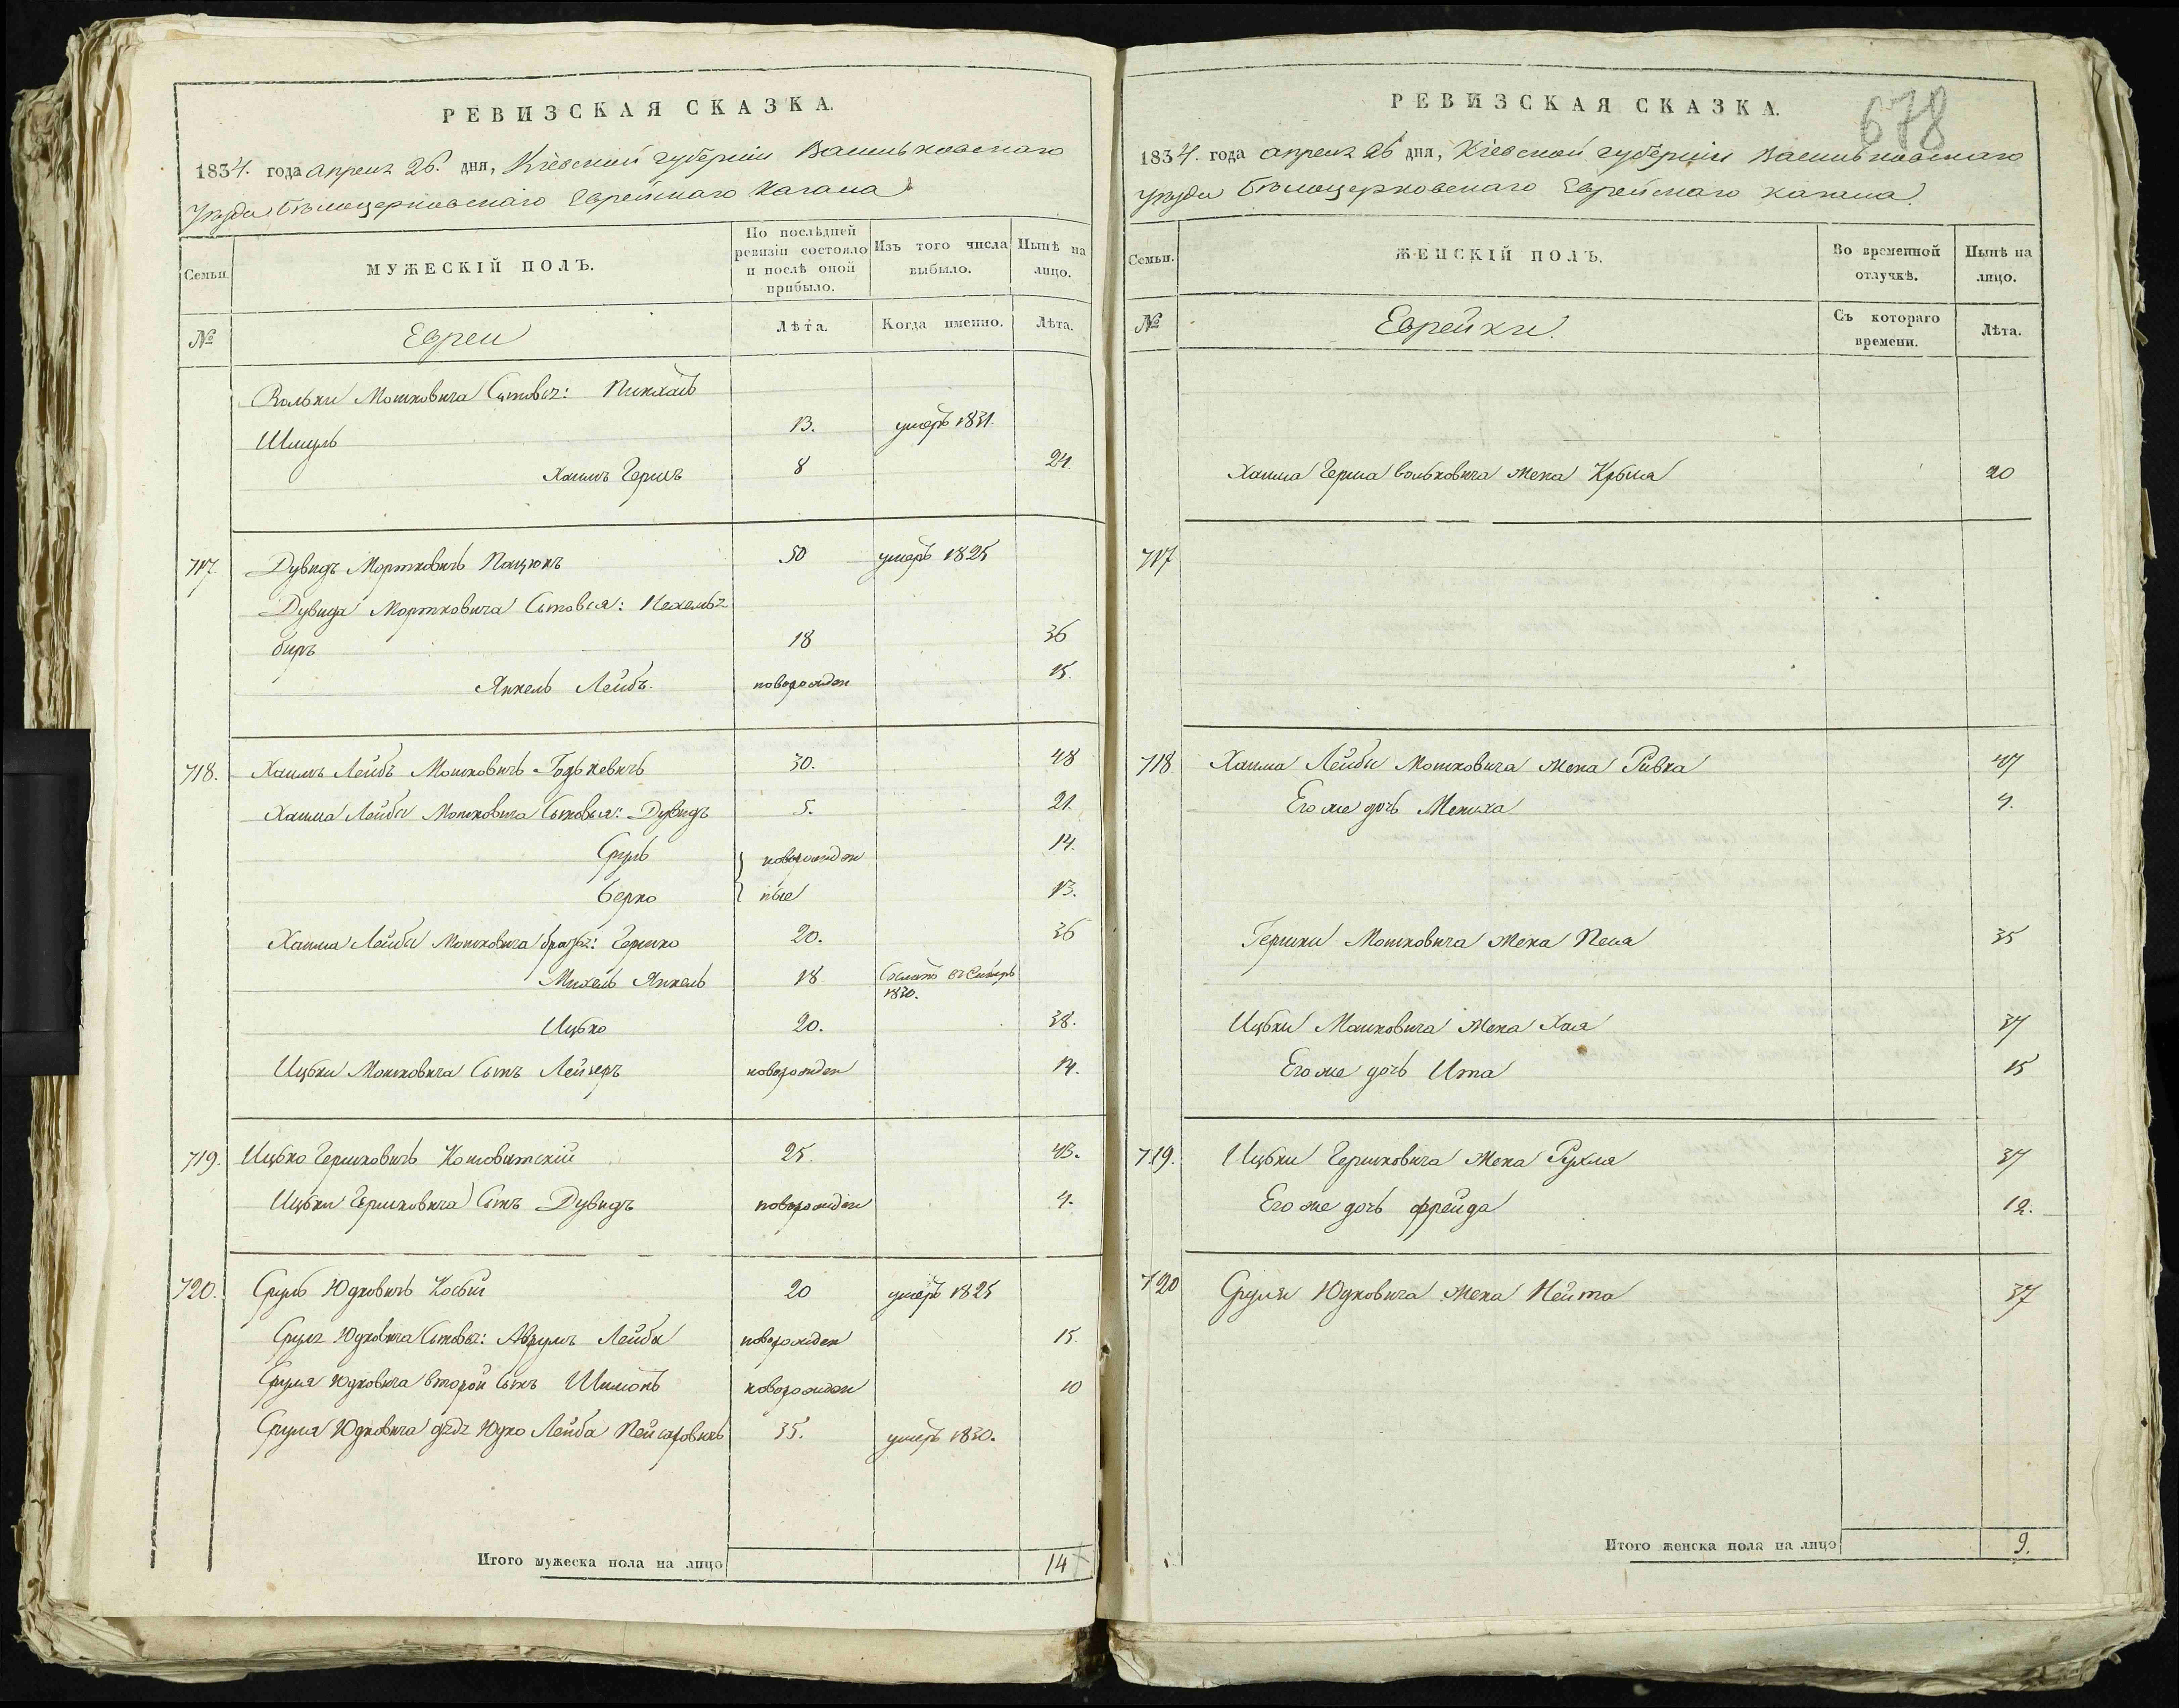 РЕВИЗСКАЯ СКАЗКА.
1834. года апреля 26. дня, Кіевской губерніи Васильковскаго
уезда Бѣлоцерковскаго Еврейскаго Кагала
Семьи.
МУЖЕСКІЙ ПОЛЪ.
По послѣдней ревизіи состояло и послѣ оной прибыло.
Изъ того числа выбыло.
Нынѣ на лицо.
№
Евреи
Лѣта.
Когда именно.
Лѣта.
Вольки Мошковича Сыновья:
Шмуль 13. умеръ 1831.
Хаимъ Гершъ 8 24.
717. Дувидъ Мортковичъ Пацюкъ 50 умеръ 1825
Дувида Мортковича Сыновья:
беръ 18 36
Янкель Лейбъ. новорожден 15.
718. Хаимъ Лейбъ Мошковичъ 30. 48
Хаима Лейбы Мошковича Сыновья: Дувидъ 5. 21.
Сруль } новорожден 14.
Берко } ные 13.
Хаима Лейбы Мошковича братья: Гершко 20. 36
Михель Янкель 18 Сосланъ въ Сибирь
1830.
Ицько 20. 38.
Ицьки Мошковича Сынъ Лейзеръ новорожден 14.
719. Ицько Гершковичъ 25. 43.
Ицьки Гершковича Сынъ Дувидъ новорожден 4.
720. Сруль Юдковичъ Косый 20 умеръ 1825
Сруля Юдковича Сыновья: Аврумъ Лейба новорожден 15.
Сруля Юдковича второй Сынъ Шимонъ новорожден 10
Сруля Юдковича дядя Юдко Лейба Пейсаховичъ 35. умеръ 1830.
Итого мужеска пола на лицо 14
РЕВИЗСКАЯ СКАЗКА.
678
1834. года апреля 26 дня, Кіевской губерніи Васильковскаго
уезда Бѣлоцерковскаго Еврейскаго кагала.
Семьи.
ЖЕНСКІЙ ПОЛЪ.
Во временной отлучкѣ.
Нынѣ на лицо.
№
Еврейки.
Съ котораго времени.
Лѣта.
Хаима Герша Вольковича жена 20
717
718 Хаима Лейбы Мошковича жена Ривка 47
Его же дочь Менуха 4.
Гершки Мошковича жена Песа 35
Ицьки Мошковича жена Хая 37
Его же дочь Ита 15
719. Ицьки Гершковича жена Рухля 37
Его же дочь фрейда 12.
720 Сруля Юдковича жена Нейта 37
Итого женска пола на лицо 9.